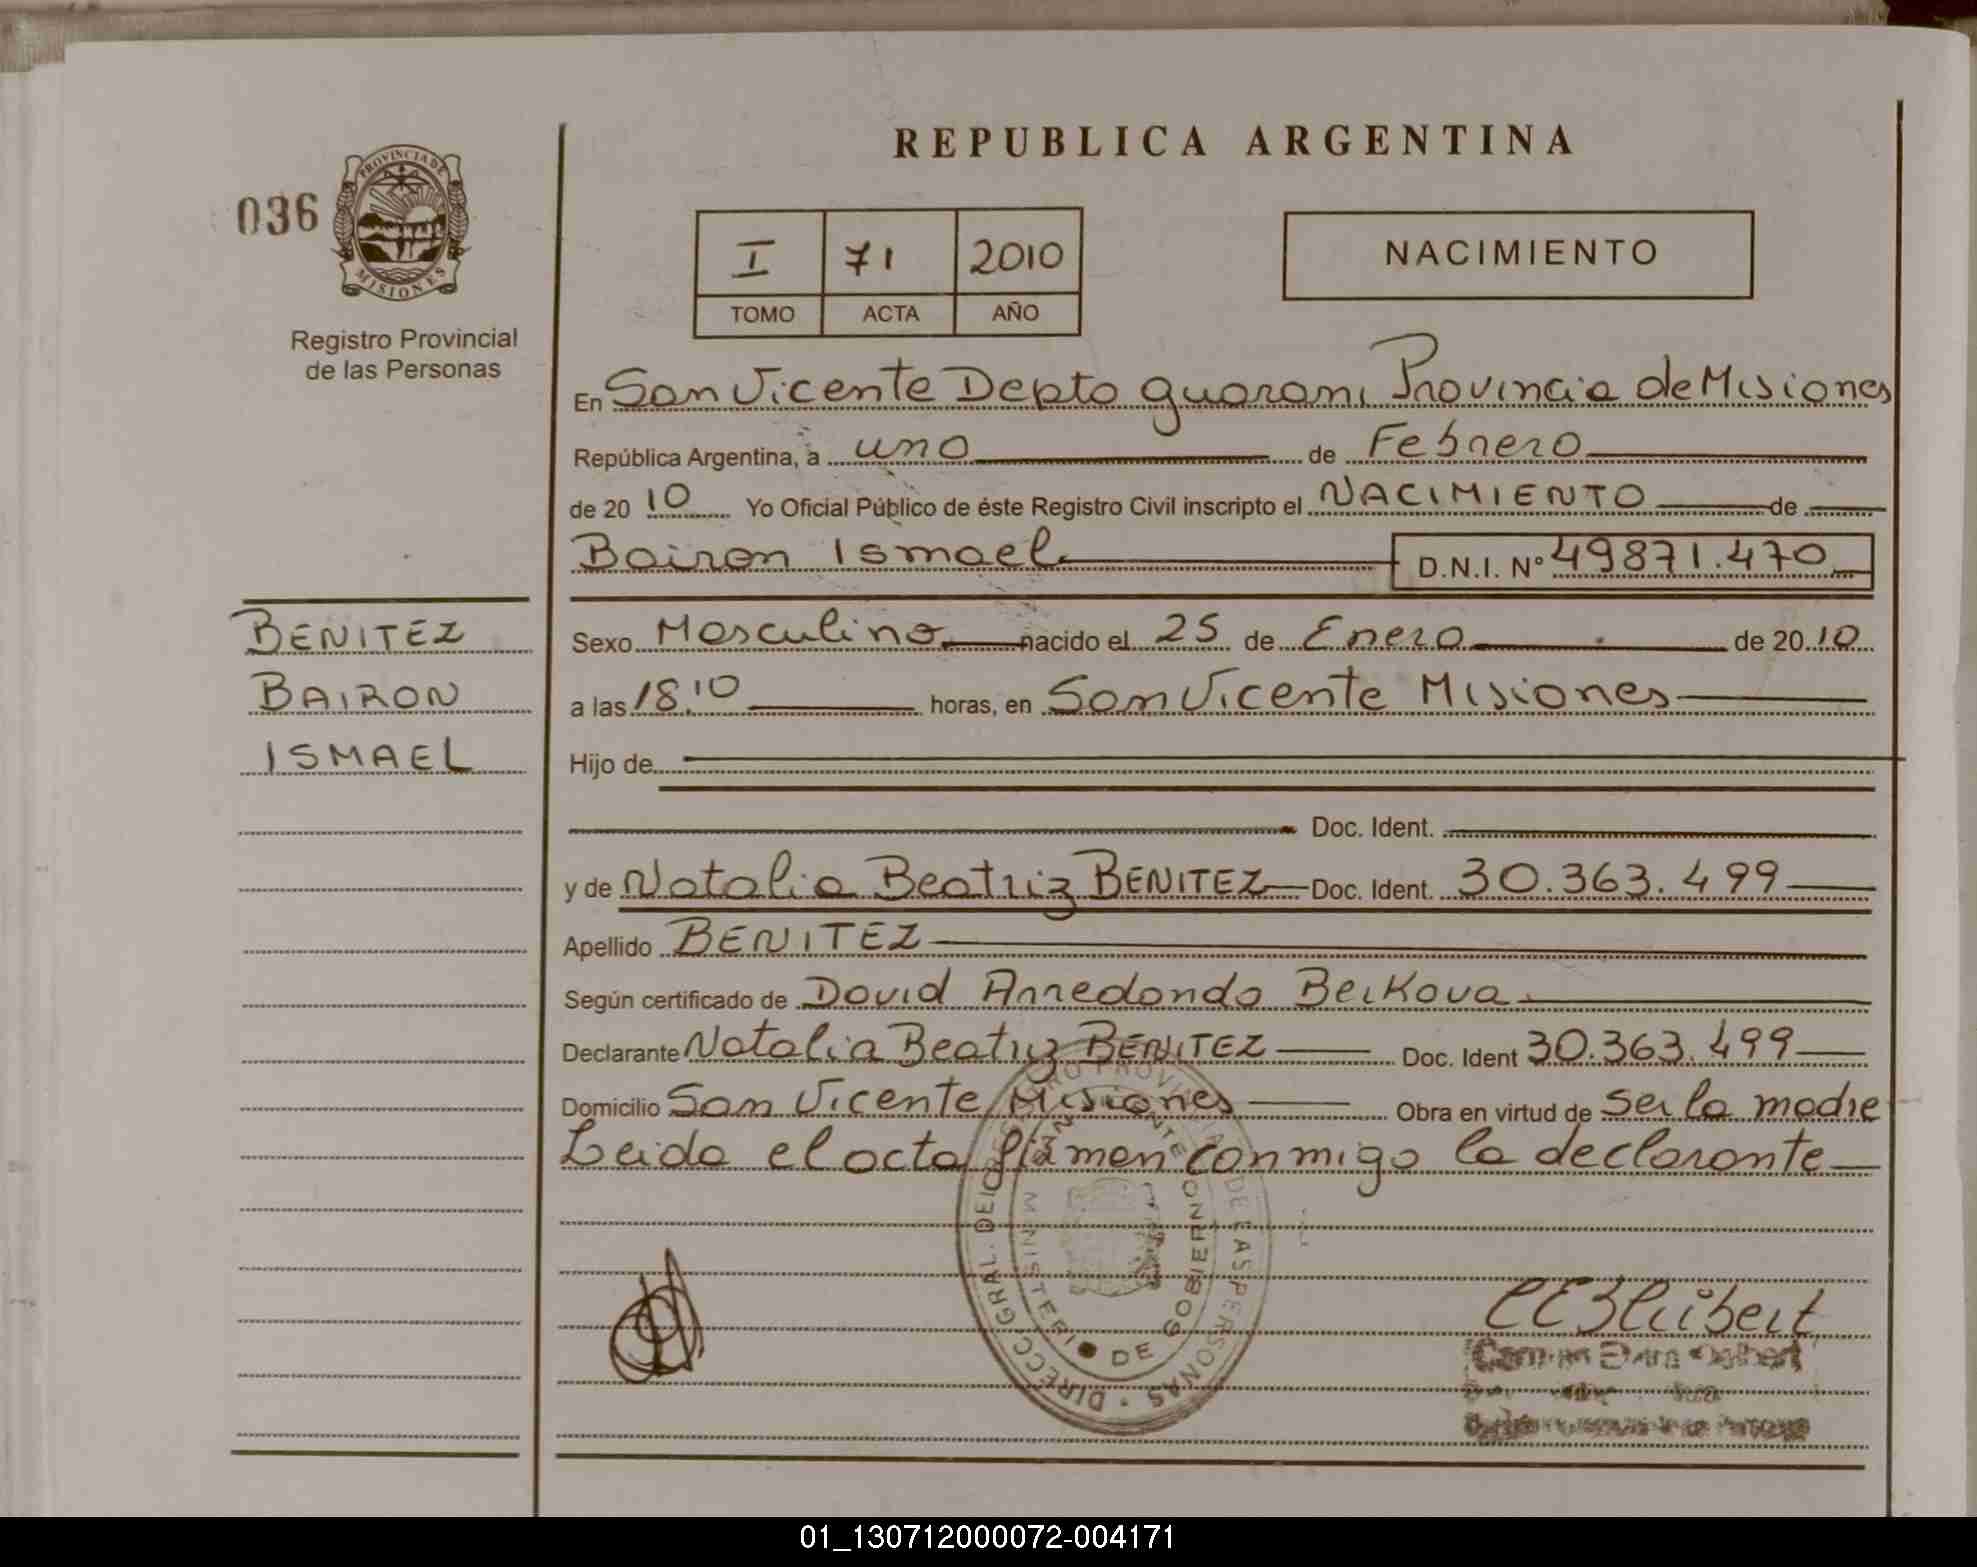 REPUBLICA ARGENTINA
036
PROVINCIA DE
MISIONES
Registro Provincial
de las Personas
I 71 2010
TOMO ACTA AÑO
NACIMIENTO
En San Vicente Depto guarani Provincia de Misiones
República Argentina, a uno de Febrero
de 20 10 Yo Oficial Público de éste Registro Civil inscripto el NACIMIENTO de
Bairon Ismael D.N.I. Nº 49871.470
BENITEZ
BAIRON
ISMAEL
Sexo Masculino nacido el 25 de Enero de 20 10
a las 18:10 horas, en San Vicente Misiones
Hijo de
Doc. Ident.
y de Natalia Beatriz BENITEZ Doc. Ident. 30.363.499
Apellido BENITEZ
Según certificado de David Arredondo Beikova
Declarante Natalia Beatriz BENITEZ Doc. Ident 30.363.499
Domicilio San Vicente Misiones Obra en virtud de ser la madre
Leida el acta firman conmigo la declarante
DIRECC. GRAL. DEL REGISTRO PROVINCIAL DE LAS PERSONAS
MINISTERIO DE GOBIERNO
01_130712000072-004171